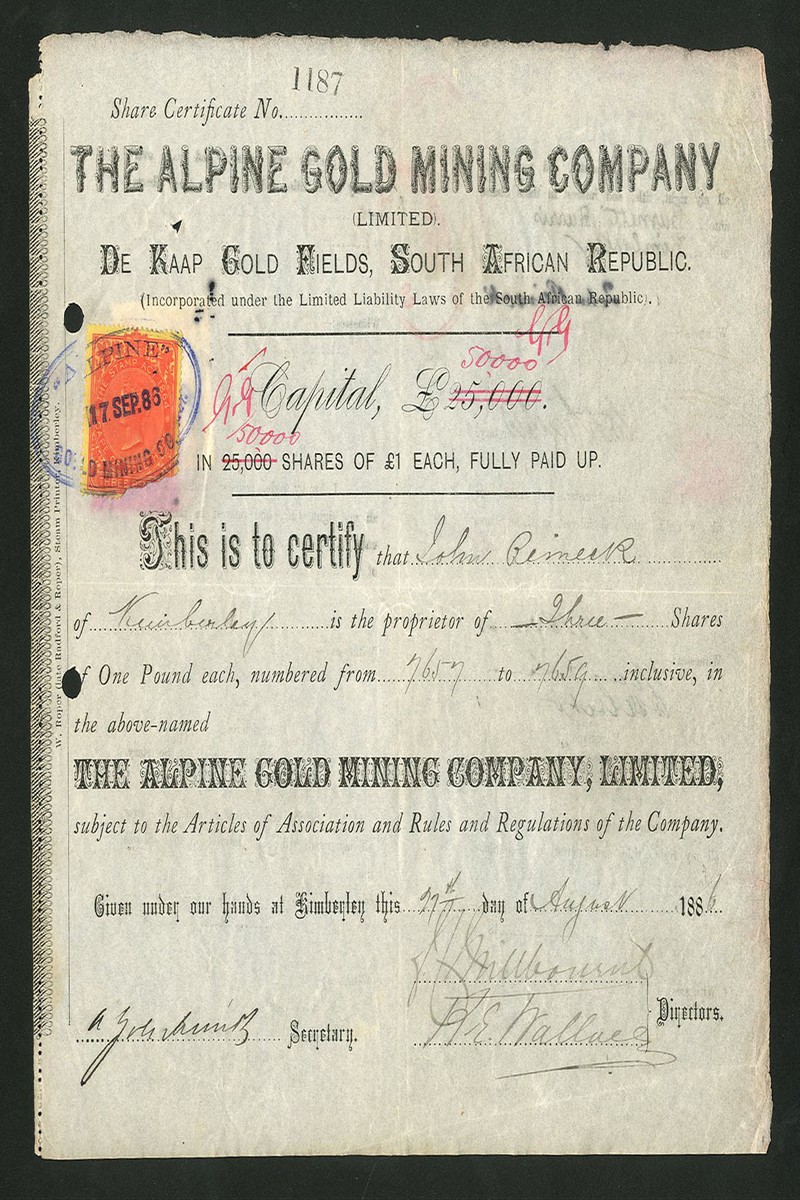 1187
Share Certificate No.
THE ALPINE GOLD MINING COMPANY
(LIMITED).
DE KAAP GOLD FIELDS, SOUTH AFRICAN REPUBLIC.
(Incorporated under the Limited Liability Laws of the South African Republic).
50000
Capital, £25,000.
50000
IN 25,000 SHARES OF £1 EACH, FULLY PAID UP.
"ALPINE"
17 SEP. 86
GOLD MINING CO.
This is to certify that John Reimeck
of Kimberley is the proprietor of — Three — Shares
of One Pound each, numbered from 7657 to 7659 inclusive, in
the above-named
THE ALPINE GOLD MINING COMPANY, LIMITED,
subject to the Articles of Association and Rules and Regulations of the Company.
Given under our hands at Kimberley this 27th day of August 1886.
Millbourne
H.E. Wallace
Directors.
A Goldschmidt Secretary.
W. Roper (late Radford & Roper), Steam Printer, Kimberley.